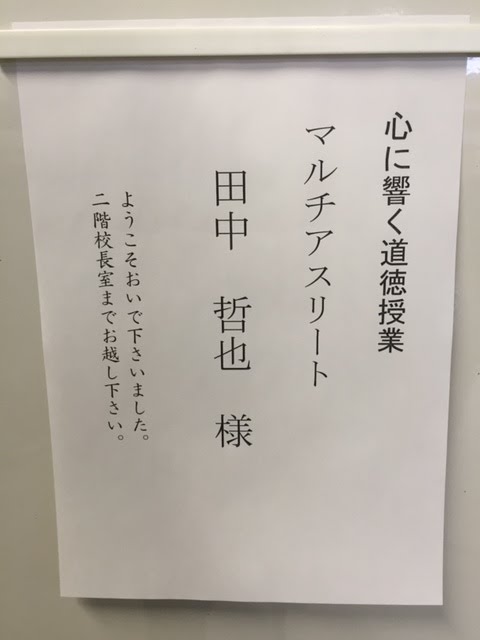 心に響く道徳授業
マルチアスリート
田中　哲也　様
ようこそおいで下さいました。
二階校長室までお越し下さい。